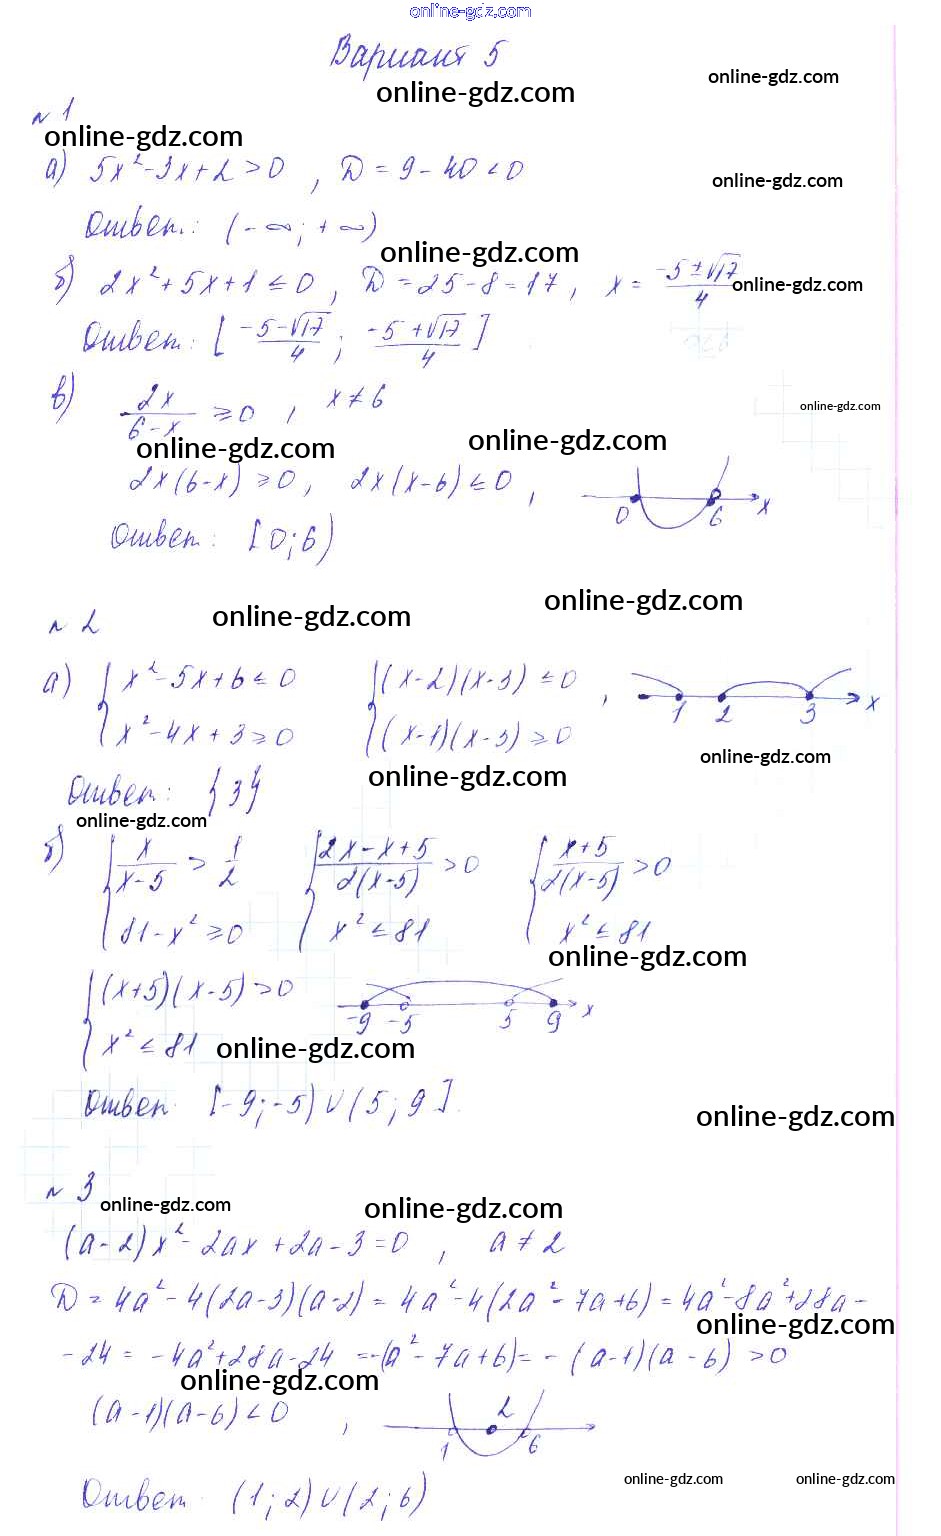 online-gdz.com
Вариант 5
online-gdz.com online-gdz.com
№ 1
online-gdz.com
а) 5x² - 3x + 2 > 0 , D = 9 - 40 < 0
online-gdz.com
Ответ: (-∞; +∞)
online-gdz.com
б) 2x² + 5x + 1 ≤ 0 , D = 25 - 8 = 17 , x = (-5 ± √17)/4
online-gdz.com
Ответ: [(-5 - √17)/4 ; (-5 + √17)/4]
в) 2x/(6 - x) ≥ 0 , x ≠ 6
online-gdz.com
online-gdz.com online-gdz.com
2x(6 - x) ≥ 0 , 2x(x - 6) ≤ 0 ,
0 6 x
Ответ: [0; 6)
online-gdz.com online-gdz.com
№ 2
а) { x² - 5x + 6 ≤ 0 { (x - 2)(x - 3) ≤ 0 ,
1 2 3 x
x² - 4x + 3 ≥ 0 (x - 1)(x - 3) ≥ 0
online-gdz.com
online-gdz.com
Ответ: {3}
online-gdz.com
б) { x/(x - 5) > 1/2 { (2x - x + 5)/(2(x - 5)) > 0 { (x + 5)/(2(x - 5)) > 0
81 - x² ≥ 0 x² ≤ 81 x² ≤ 81
online-gdz.com
{ (x + 5)(x - 5) > 0
-9 -5 5 9 x
x² ≤ 81
online-gdz.com
Ответ: [-9; -5) ∪ (5; 9].
online-gdz.com
№ 3
online-gdz.com online-gdz.com
(a - 2)x² - 2ax + 2a - 3 = 0 , a ≠ 2
D = 4a² - 4(2a - 3)(a - 2) = 4a² - 4(2a² - 7a + 6) = 4a² - 8a² + 28a -
online-gdz.com
- 24 = -4a² + 28a - 24 = -(a² - 7a + 6) = -(a - 1)(a - 6) > 0
online-gdz.com
(a - 1)(a - 6) < 0 ,
1 2 6
online-gdz.com online-gdz.com
Ответ: (1; 2) ∪ (2; 6)